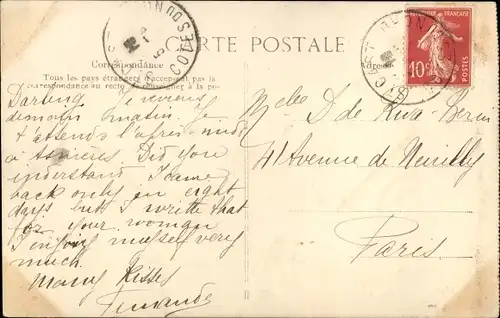 CARTE POSTALE
Correspondance
Tous les pays étrangers n'acceptent pas la
correspondance au recto, se renseigner à la po-
Darling Je reviens
demain matin. Je
t'attends l'après-midi
à Asnières. Did you
understand I came
back only in eight
days but I write that
for your woman
I enjoy myself very
much.
Many Kisses
Fernande
Melle D de
41 Avenue de Neuilly
Paris
10c
POSTES